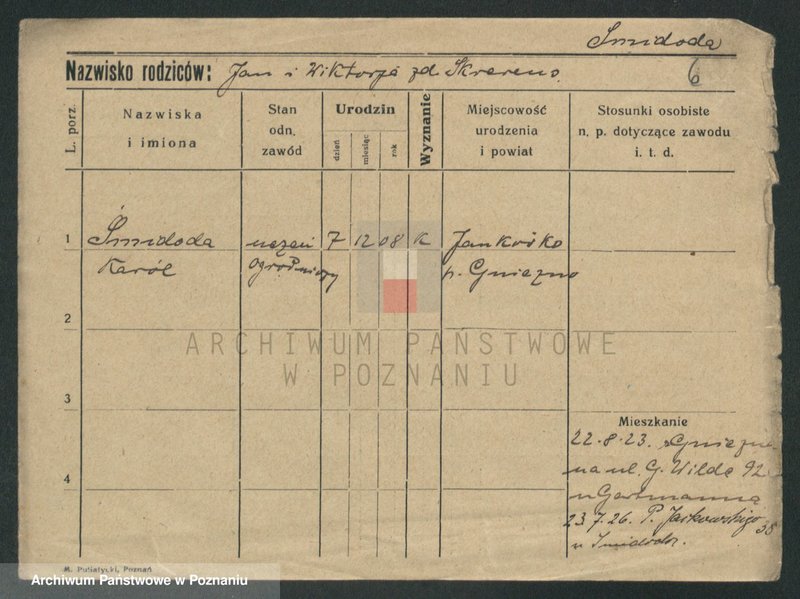 Śmidoda
Nazwisko rodziców: Jan i Wiktorja zd. Skrereno.
6
L. porz.
Nazwiska
i imiona
Stan
odn.
zawód
Urodzin
dzień
miesiąc
rok
Wyznanie
Miejscowość
urodzenia
i powiat
Stosunki osobiste
n. p. dotyczące zawodu
i. t. d.
1 Śmidoda uczeń 7 12 08 K Jankówko
Karól ogrodniczy p. Gniezno
2
ARCHIWUM PAŃSTWOWE
W POZNANIU
3
Mieszkanie
22.8.23. z Gniezna
na ul. G. Wilda 92
u Gartmanna
4
23.7.26. P. Jackowskiego 38
u Śmidoda.
M. Putiatycki, Poznań
Archiwum Państwowe w Poznaniu